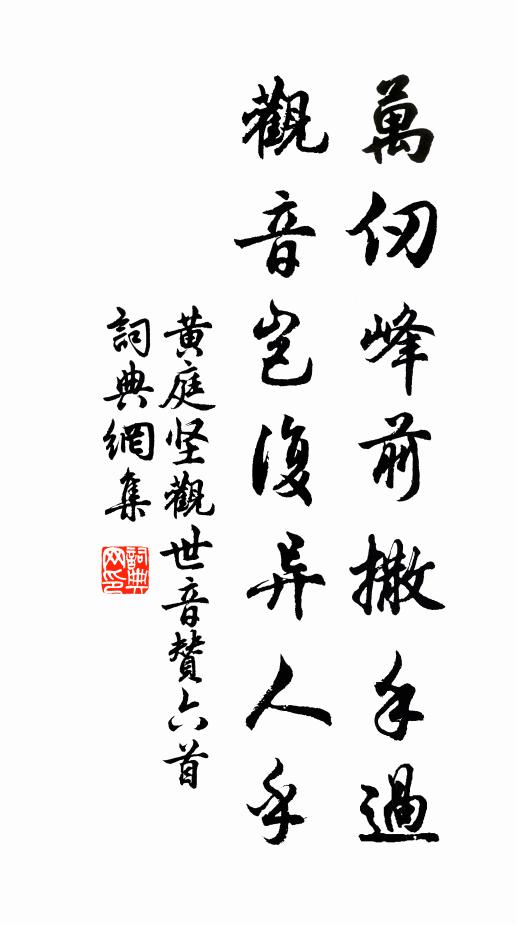 萬仞峰前撒手過
觀音岂復异人乎
黄庭坚觀世音赞六首
詞典網集
詞典网印